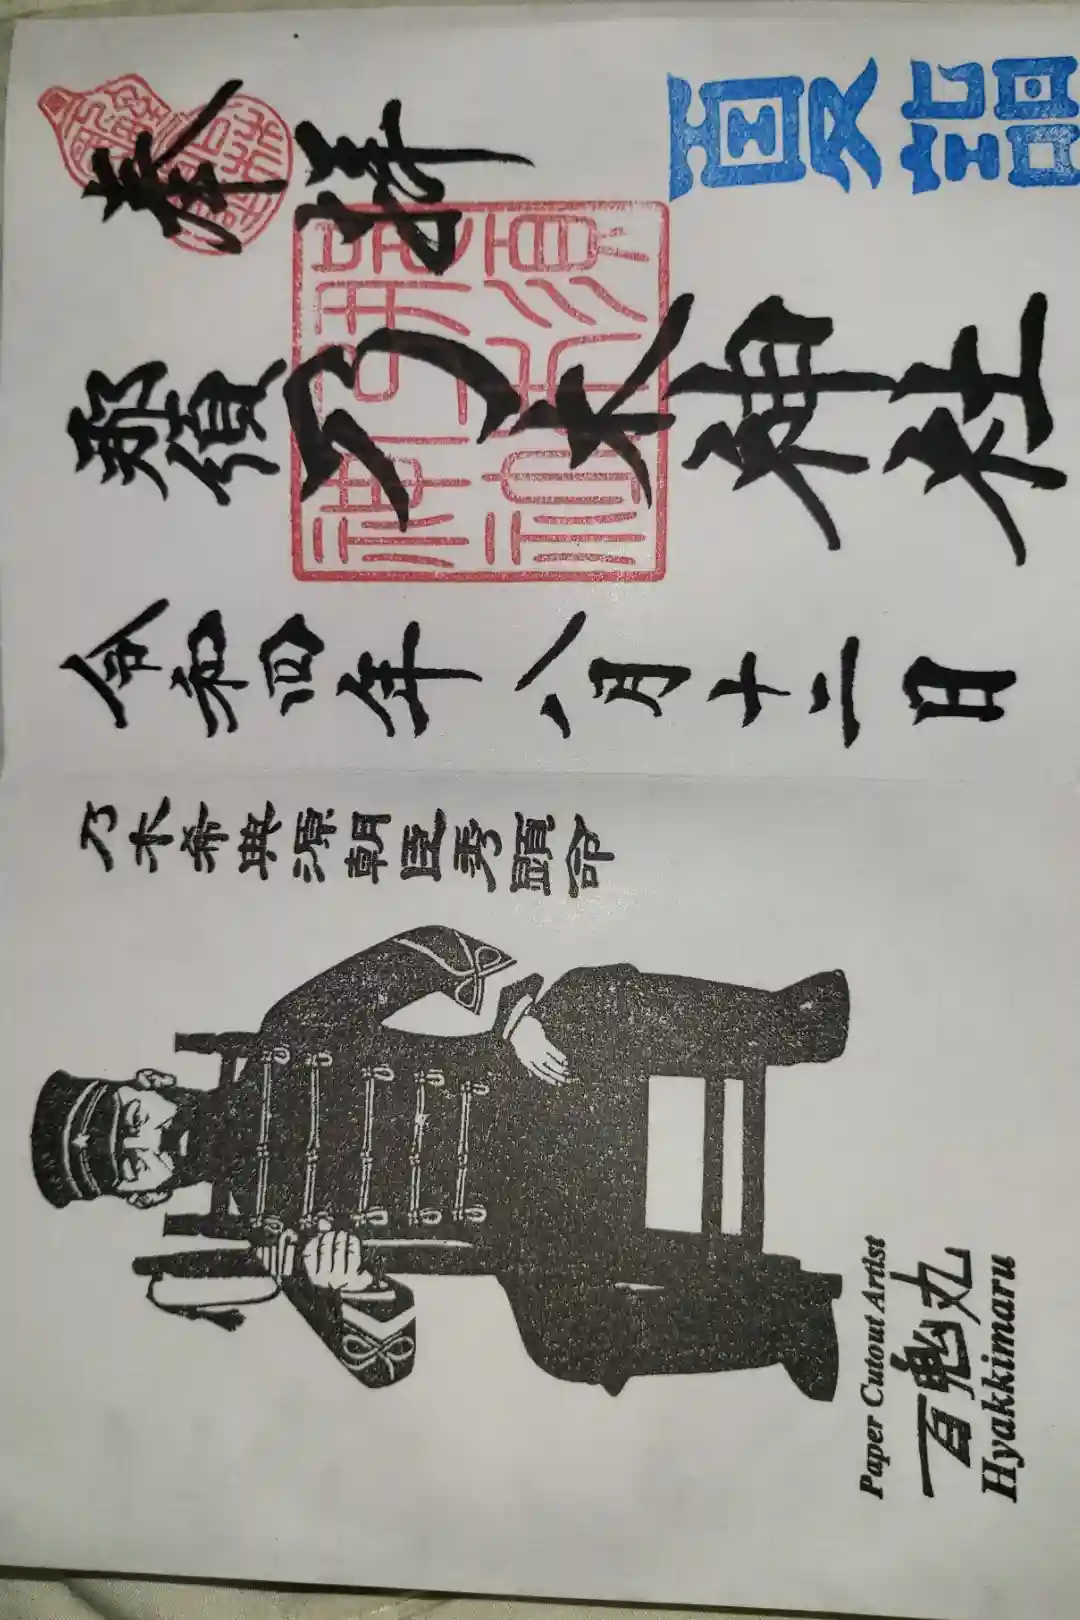 奉拝
夏詣
那須乃木神社
令和四年八月十二日
乃木希典源朝臣秀顯命
Paper Cutout Artist
百鬼丸
Hyakkimaru